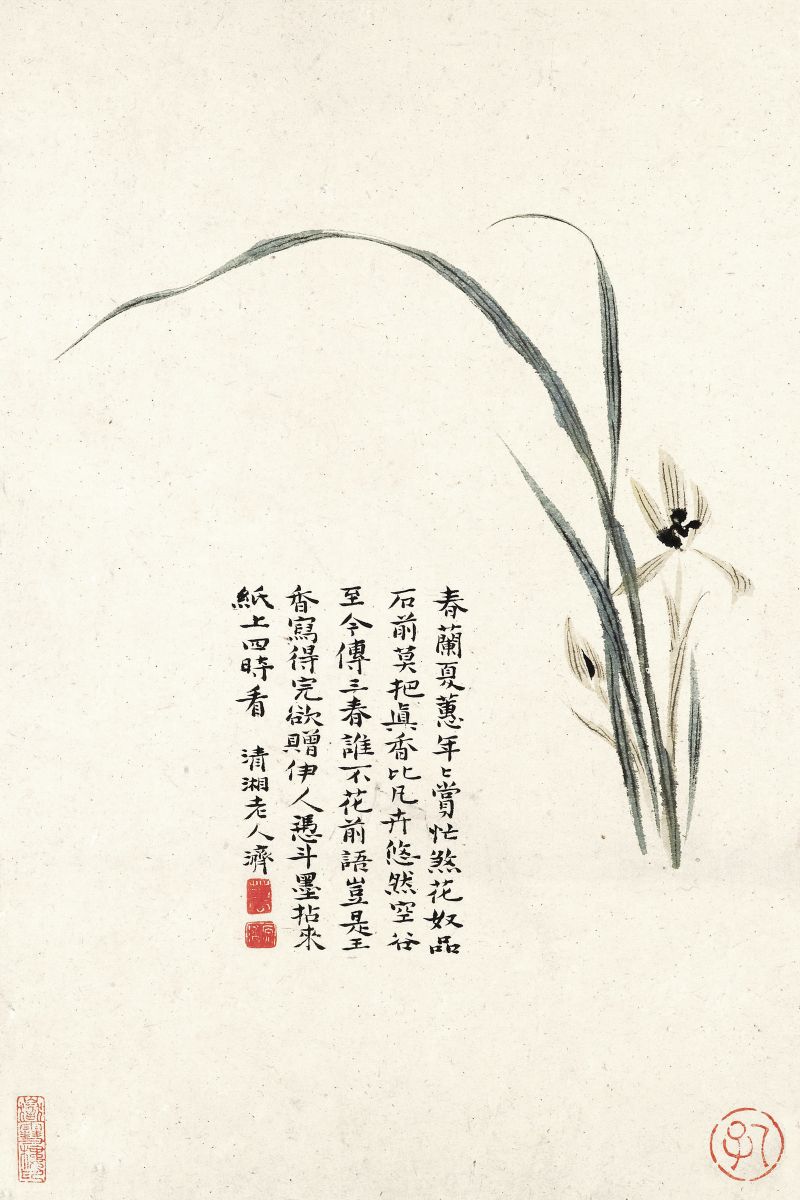 春蘭夏蕙年〻賞忙煞花奴品
石前莫把眞香比凡卉悠然空谷
至今傳三春誰不花前語豈是王
香寫得完欲贈伊人憑斗墨拈來
紙上四時看　清湘老人濟